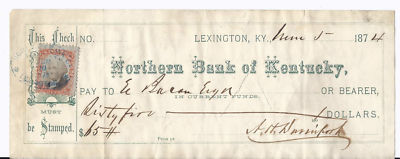 This Check NO. LEXINGTON, KY. June 5 1874
Northern Bank of Kentucky,
PAY TO E Bacon Esqr OR BEARER,
IN CURRENT FUNDS.
MUST Sixty five DOLLARS.
be Stamped. $65